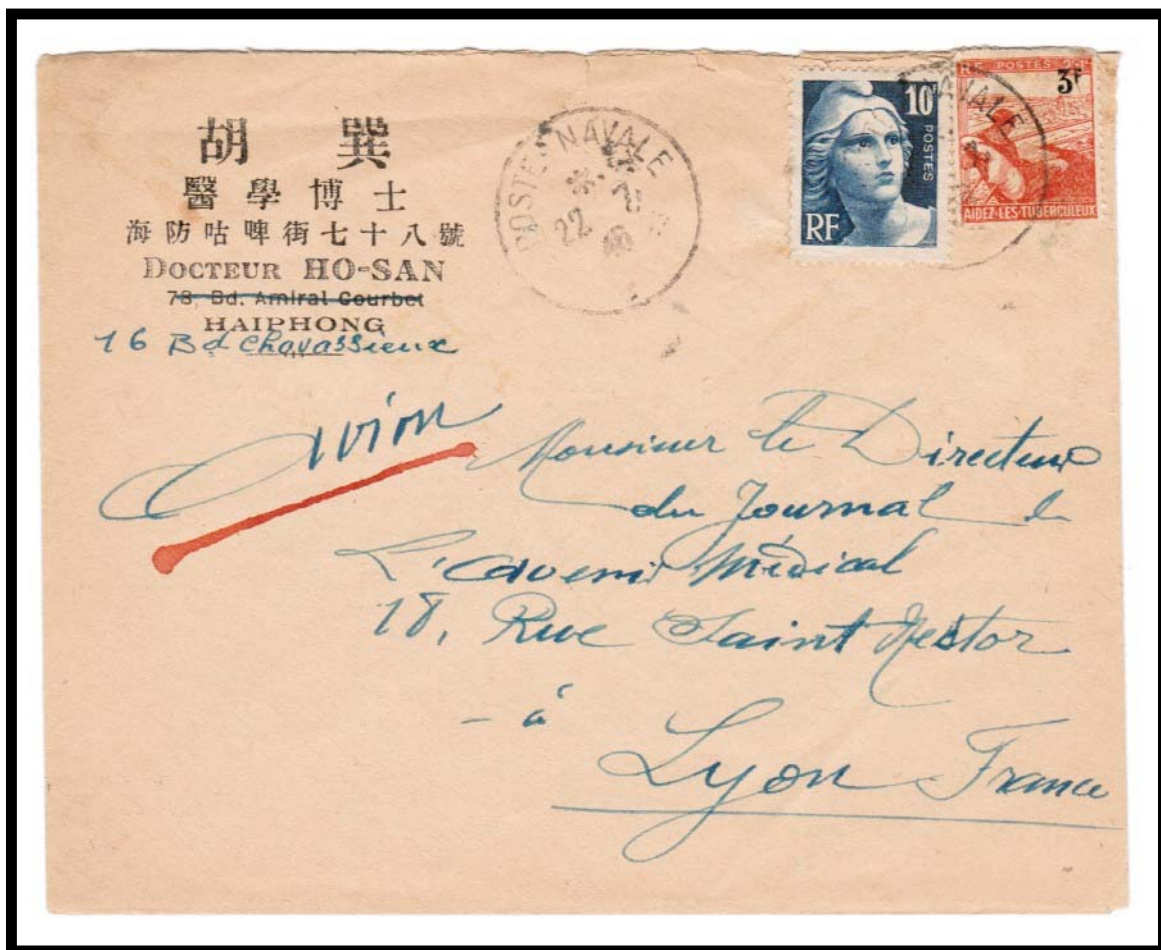 胡 巽
醫學博士
海防咕啤街七十八號
DOCTEUR HO-SAN
78, Bd. Amiral Courbet
HAIPHONG
16 Bd Chavassieux
POSTE NAVALE
22
46
10F
POSTES
RF
RF POSTES 2F
3F
AIDEZ LES TUBERCULEUX
NAVALE
Avion
Monsieur le Directeur
du Journal
L'avenir Médical
18, Rue Saint Nestor
- à
Lyon France